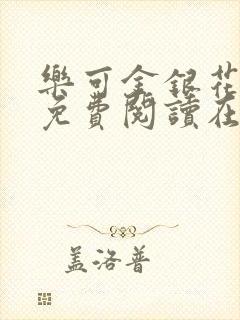 樂可金銀花
免費閱讀在
盖洛普